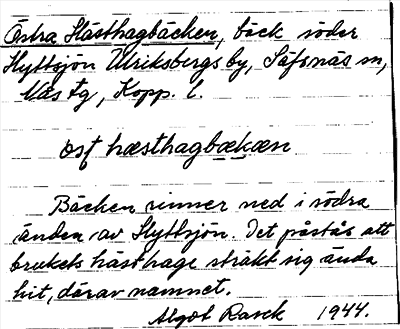 Östra Hästhagbäcken, bäck söder
Hyttsjön Ulriksbergs by, Säfsnäs sn,
Näs tg, Kopp. l.
hæsthagbækæn
Bäcken rinner ned i södra
änden av Hyttsjön. Det påstås att
brukets hästhage sträkt sig ända
hit, därav namnet.
Algot Rask 1944.